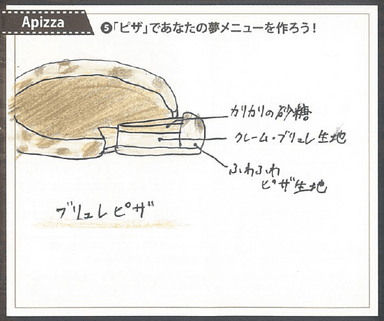 Apizza
❺「ピザ」であなたの夢メニューを作ろう！
カリカリの砂糖
クレーム・ブリュレ生地
ふわふわ
ピザ生地
ブリュレピザ